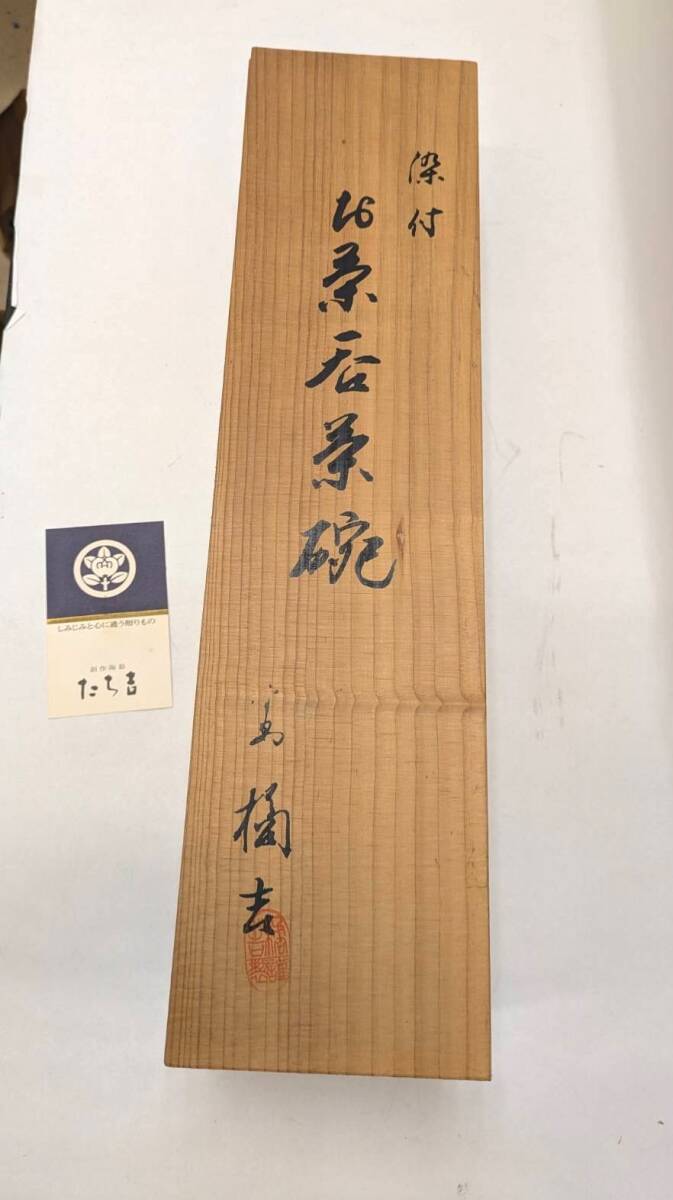 染付
お茶呑茶碗
橘吉
しみじみと心に通う贈りもの
創作陶器
たち吉